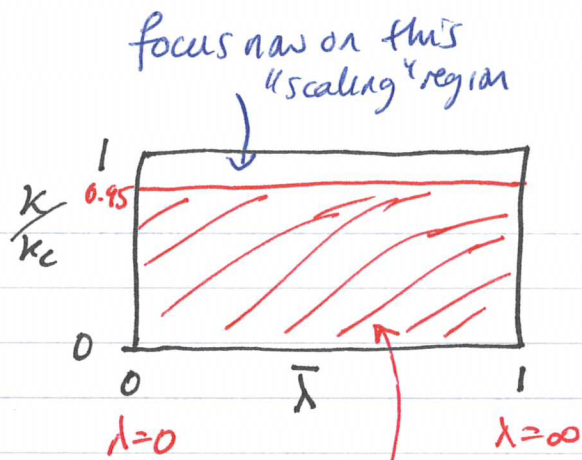 focus now on this
"scaling" region
1
0.95
κ/κc
0
0
λ̄
1
λ=0
λ=∞